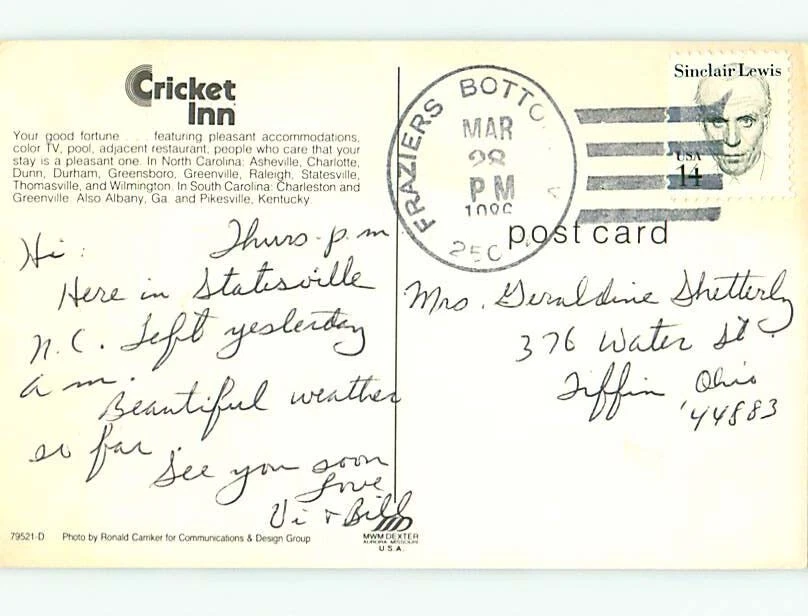 Cricket
Inn
Your good fortune . . . featuring pleasant accommodations,
color TV, pool, adjacent restaurant, people who care that your
stay is a pleasant one. In North Carolina: Asheville, Charlotte,
Dunn, Durham, Greensboro, Greenville, Raleigh, Statesville,
Thomasville, and Wilmington. In South Carolina: Charleston and
Greenville. Also Albany, Ga. and Pikesville, Kentucky.
Hi: Thurs. p.m
Here in Statesville
N.C. Left yesterday
a m.
Beautiful weather
so far.
See you soon
Love
Vi & Bill
79521-D Photo by Ronald Carriker for Communications & Design Group
MWM DEXTER
AURORA MISSOURI
U.S.A.
FRAZIERS BOTTO
MAR
28
PM
198
Sinclair Lewis
USA
14
post card
Mrs. Geraldine Shetterly
376 Water St.
Tiffin Ohio
44883